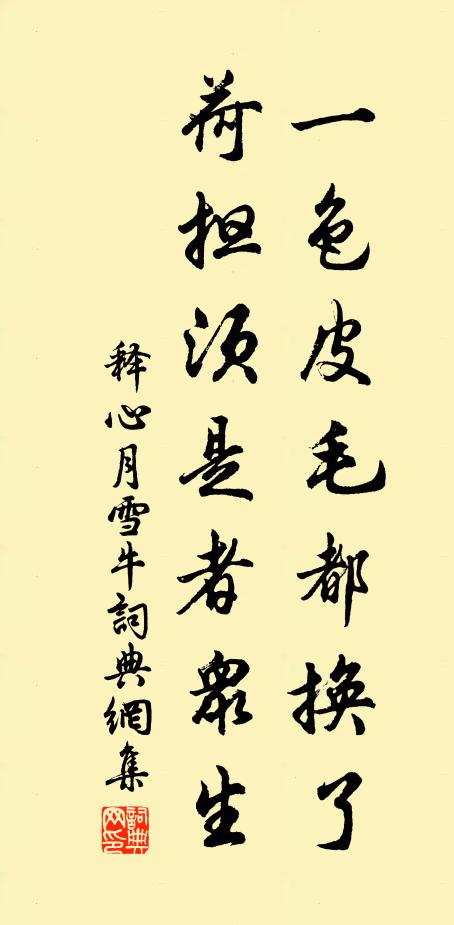 一色皮毛都换了
荷担须是者众生
释心月雪牛词典网集
词典网印